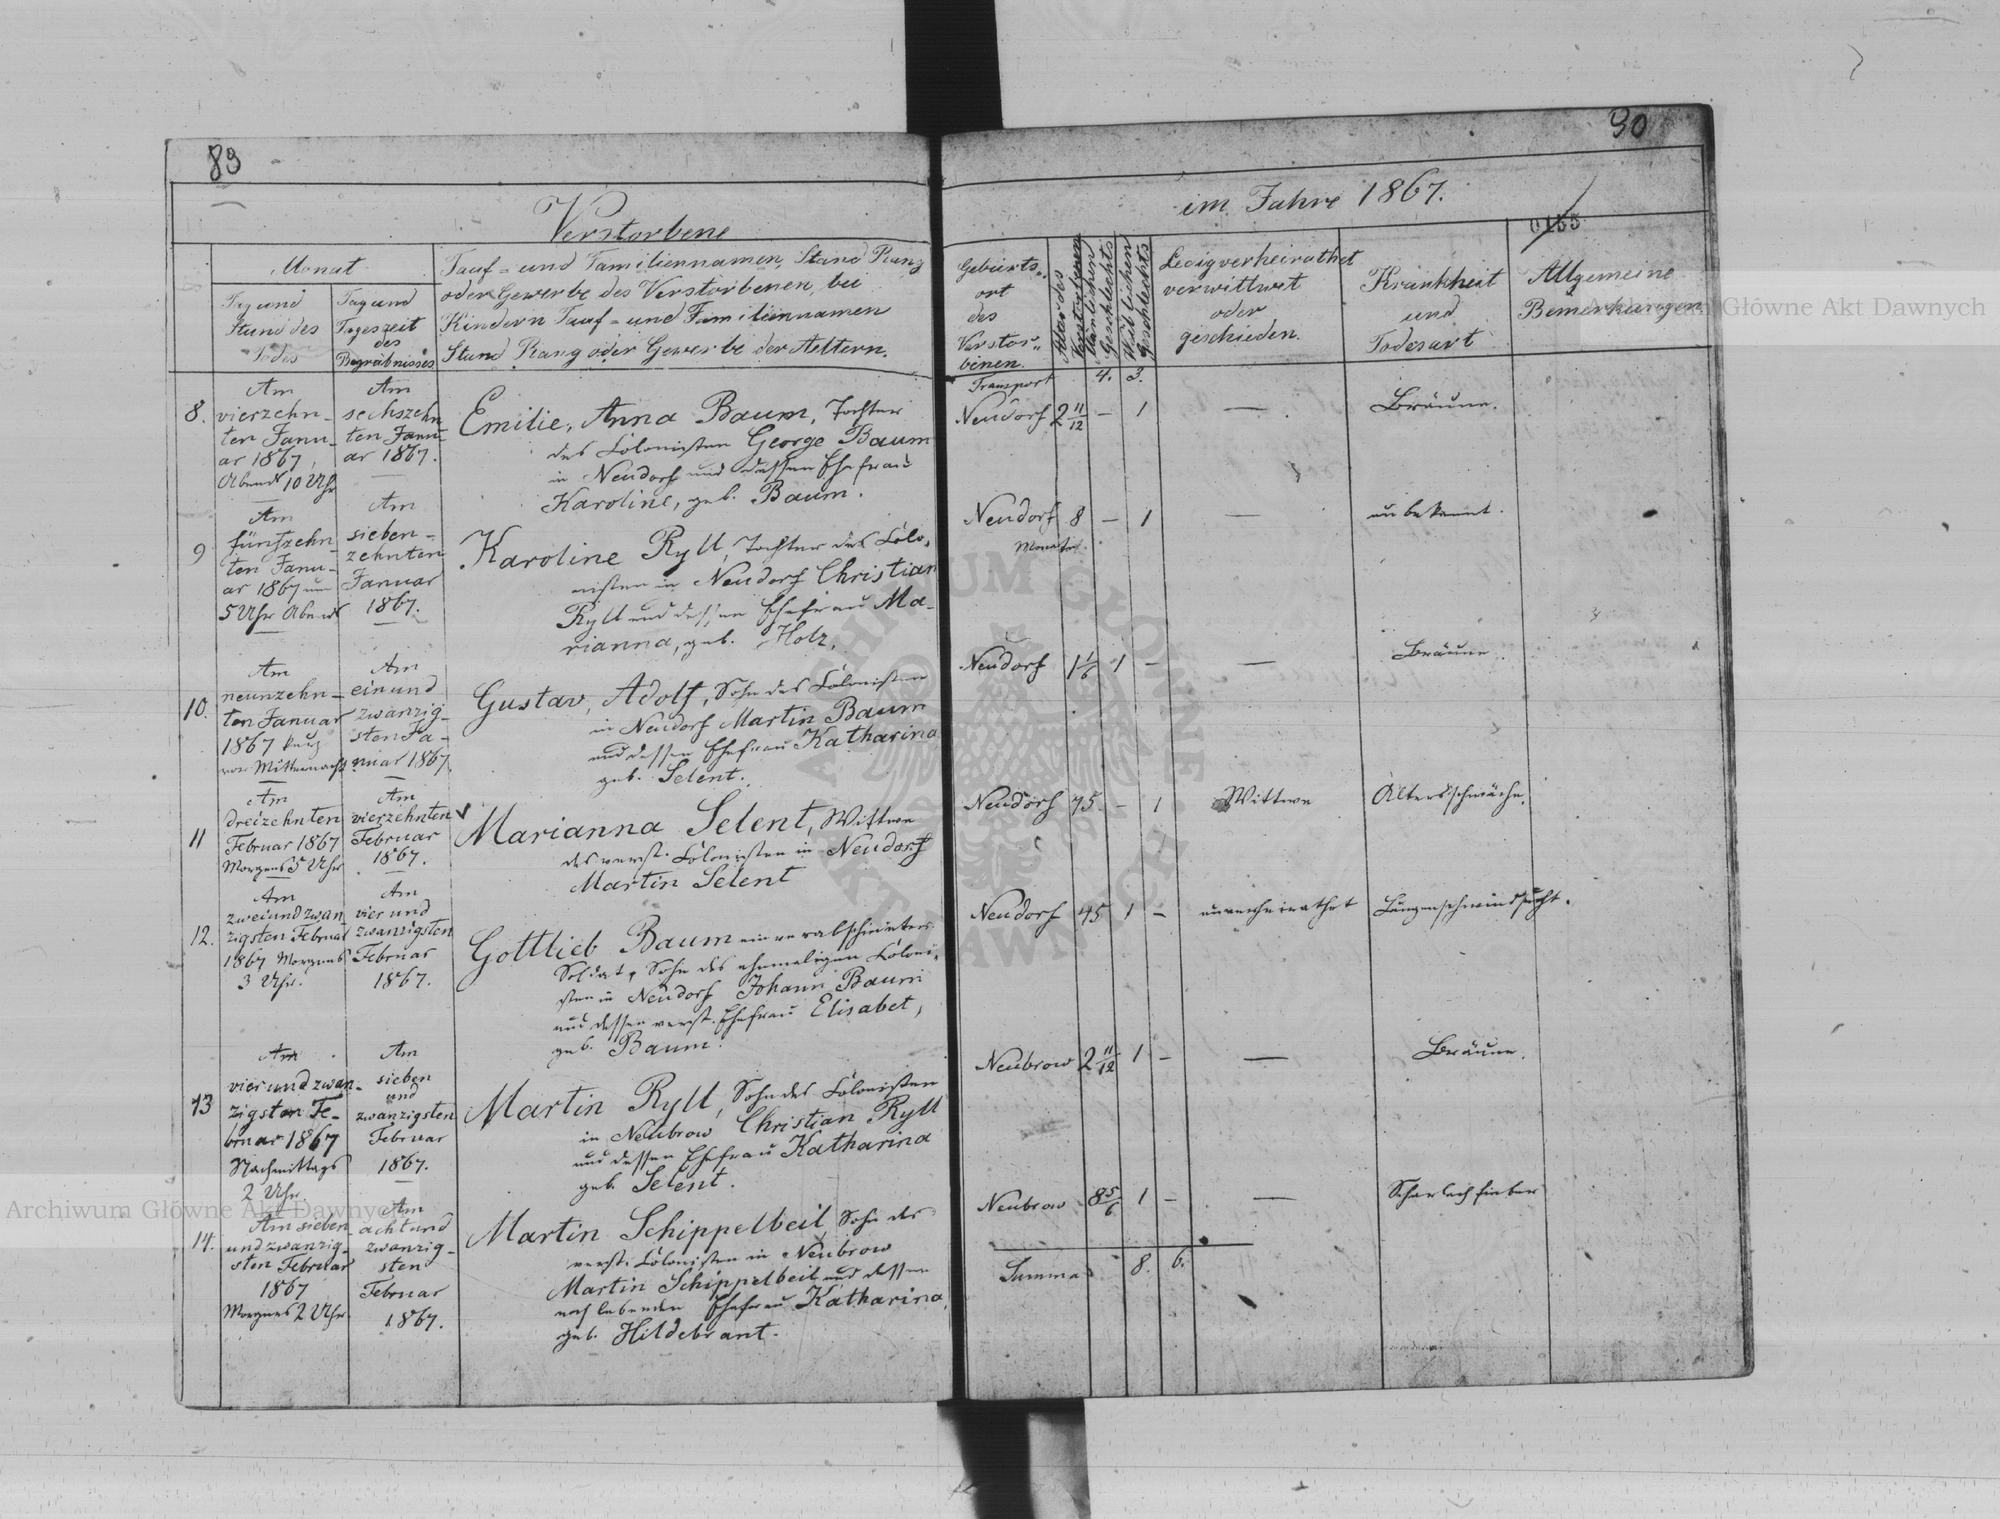 83
Verstorbene
Monat
Tag und
Stund des
Todes
Tag und
Tageszeit
des
Begräbnisses
Tauf- und Familiennamen, Stand Rang
oder Gewerbe des Verstorbenen, bei
Kindern Tauf- und Familiennamen
Stand Rang oder Gewerbe der Aeltern.
8.
Am
vierzehn-
ten Janu-
ar 1867,
Abends 10 Uhr
Am
sechszehn
ten Janu-
ar 1867.
Emilie, Anna Baum, Tochter
des Colonisten George Baum
in Neudorf und dessen Ehefrau
Karoline, geb. Baum.
9
Am
fünfzehn-
ten Janu-
ar 1867 um
5 Uhr Abends
Am
sieben-
zehnten
Januar
1867.
Karoline Ryll, Tochter des Colo-
nisten in Neudorf Christian
Ryll und dessen Ehefrau Ma-
rianna, geb. Holz.
10.
Am
neunzehn-
ten Januar
1867 kurz
vor Mitternacht
Am
einund
zwanzig-
sten Ja-
nuar 1867.
Gustav, Adolf, Sohn des Colonisten
in Neudorf Martin Baum
und dessen Ehefrau Katharina
geb. Selent.
11
Am
dreizehnten
Februar 1867
Morgens 5 Uhr
Am
vierzehnten
Februar
1867.
Marianna Selent, Wittwe
des verst. Colonisten in Neudorf
Martin Selent
12.
Am
zweiundzwan
zigsten Februar
1867 Morgens
3 Uhr.
Am
vier und
zwanzigsten
Februar
1867.
Gottlieb Baum ein verabschiedeter
Soldat, Sohn des ehemaligen Coloni-
sten in Neudorf Johann Baum
und dessen verst. Ehefrau Elisabet,
geb. Baum.
13
Am
vier und zwan-
zigsten Fe-
bruar 1867
Nachmittags
2 Uhr.
Am
sieben
und
zwanzigsten
Februar
1867.
Martin Ryll, Sohn des Colonisten
in Neubrow Christian Ryll
und dessen Ehefrau Katharina
geb. Selent.
14.
Am sieben
und zwanzig-
sten Februar
1867
Morgens 2 Uhr.
Am
acht und
zwanzig-
sten
Februar
1867.
Martin Schippelbeil Sohn des
verst. Colonisten in Neubrow
Martin Schippelbeil und dessen
noch lebenden Ehefrau Katharina,
geb. Hildebrant.
90
im Jahre 1867.
0155
Geburts-
ort
des
Verstor-
benen.
Alter des
Verstorbenen
Mänlichen
Geschlechts
Weiblichen
Geschlechts
Ledig verheirathet
verwittwet
oder
geschieden.
Krankheit
und
Todesart
Allgemeine
Bemerkungen
Transport 4. 3.
Neudorf 2 11/12 – 1 — Bräune.
Neudorf 8 – 1 — unbekannt.
Monate.
Neudorf 1 1/6 1 – — Bräune.
Neudorf 75. – 1 Wittwe Altersschwäche.
Neudorf 45 1 – unverheirathet Lungenschwindsucht.
Neubrow 2 11/12 1 – — Bräune.
Neubrow 8 5/6 1 – — Scharlachfieber
Summa 8. 6.
Archiwum Główne Akt Dawnych
Archiwum Główne Akt Dawnych
ARCHIWUM GŁÓWNE AKT DAWNYCH